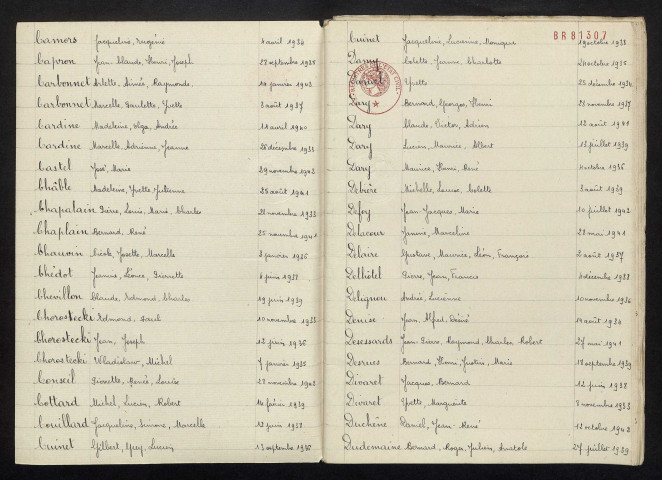 Camors Jacqueline, Eugénie 4 avril 1936
Capron Jean, Claude, Henri, Joseph 22 septembre
Carbonnet Arlette, Aimée, Raymonde 14 janvier 1943
Carbonnet Marcelle, Paulette, Yvette 3 août 1937
Cardine Madeleine, Olga, Andrée 11 avril 1940
Cardine Marcelle, Adrienne, Jeanne 28 décembre
Castel José, Marie 29 novembre 1942
Châble Madeleine, Yvette, Julienne 28 août 1941
Chapalain Pierre, Louis, Marie, Charles 21 novembre 1933
Chaplain Bernard, René 25 novembre
Chauvin Nicole, Josette, Marcelle 3 janvier 1936
Chédot Jeannine, Léonce, Pierrette 6 juin 1937
Chevillon Claude, Edmond, Charles 19 juin 1939
Chorostecki Edmond, Paul 10 novembre
Chorostecki Jean, Joseph 12 juin 1936
Chorostecki Wladislaw, Michel 7 janvier 1935
Conseil Pierrette, Renée, Louise 22 novembre 1942
Cottard Michel, Lucien, Robert 14 février 1939
Couillard Jacqueline, Simone, Marcelle 12 juin 1938
Cuinet Gilbert, Guy, Lucien 13 septembre 1936
BR81307
Cuinet Jacqueline, Lucienne, Monique 19 octobre 1938
Colette, Jeanne, Charlotte 24 octobre 1935
Yvette 25 décembre 1934
Dary Bernard, Georges, Henri 23 novembre 1937
Dary Claude, Victor, Adrien 12 août 1941
Dary Lucien, Maurice, Albert 13 juillet 1939
Dary Maurice, Henri, René 4 octobre 1936
Debière Michelle, Louise, Colette 3 août 1939
Defoy Jean-Jacques, Marie 10 juillet 1942
Delacour Jannine, Marceline 28 mai 1941
Delaire Gustave, Maurice, Léon, François 2 août 1937
Delhôtel Pierre, Jean, Francis 4 décembre 1938
Delignou André, Lucienne 10 novembre 1936
Denise Jean, Alfred, Désiré 14 août 1934
Desessards Jean-Pierre, Raymond, Charles-Robert 27 mai 1941
Desrues Bernard, Henri, Justin, Marie 18 septembre 1939
Divaret Jacques, Bernard 12 juin 1938
Divaret Yvette, Marguerite 8 novembre 1933
Duchêne Daniel, Jean-René 12 octobre 1942
Dudemaine Bernard, Roger, Julien, Anatole 27 juillet 1939